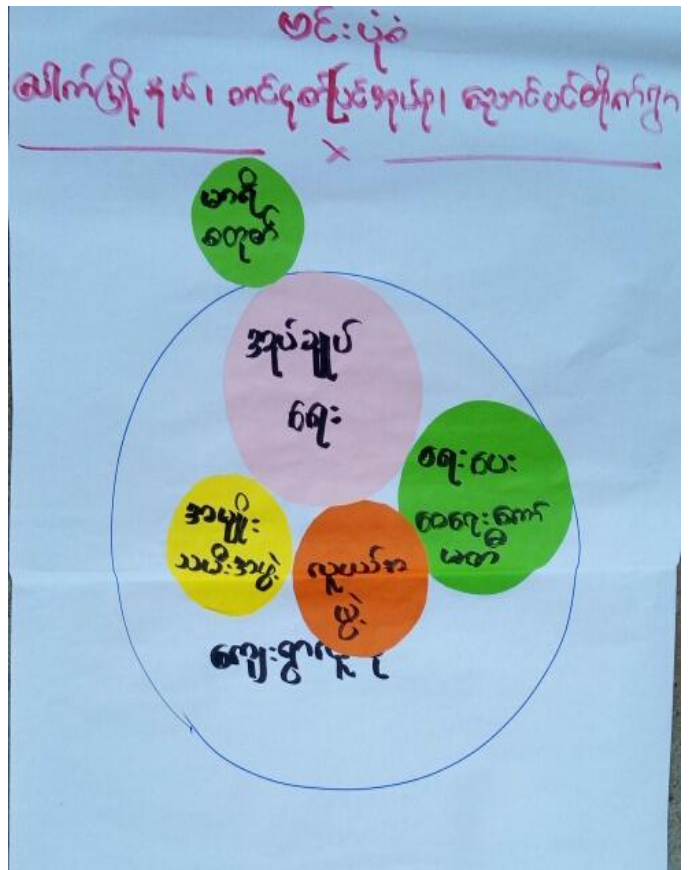 ဗင်းပုံစံ
ပေါက်မြို့နယ်၊ တင်ငုတ်ပြင်အုပ်စု၊ ညောင်ပင်တိုက်ရွာ
မာရီ
စတုတ်
အုပ်ချုပ်
ရေး
ရေးပေး
ဝေရေးကော်
မတီ
အမျိုး
သမီးအဖွဲ့
လူငယ်အ
ဖွဲ့
ကျေးရွာလူ